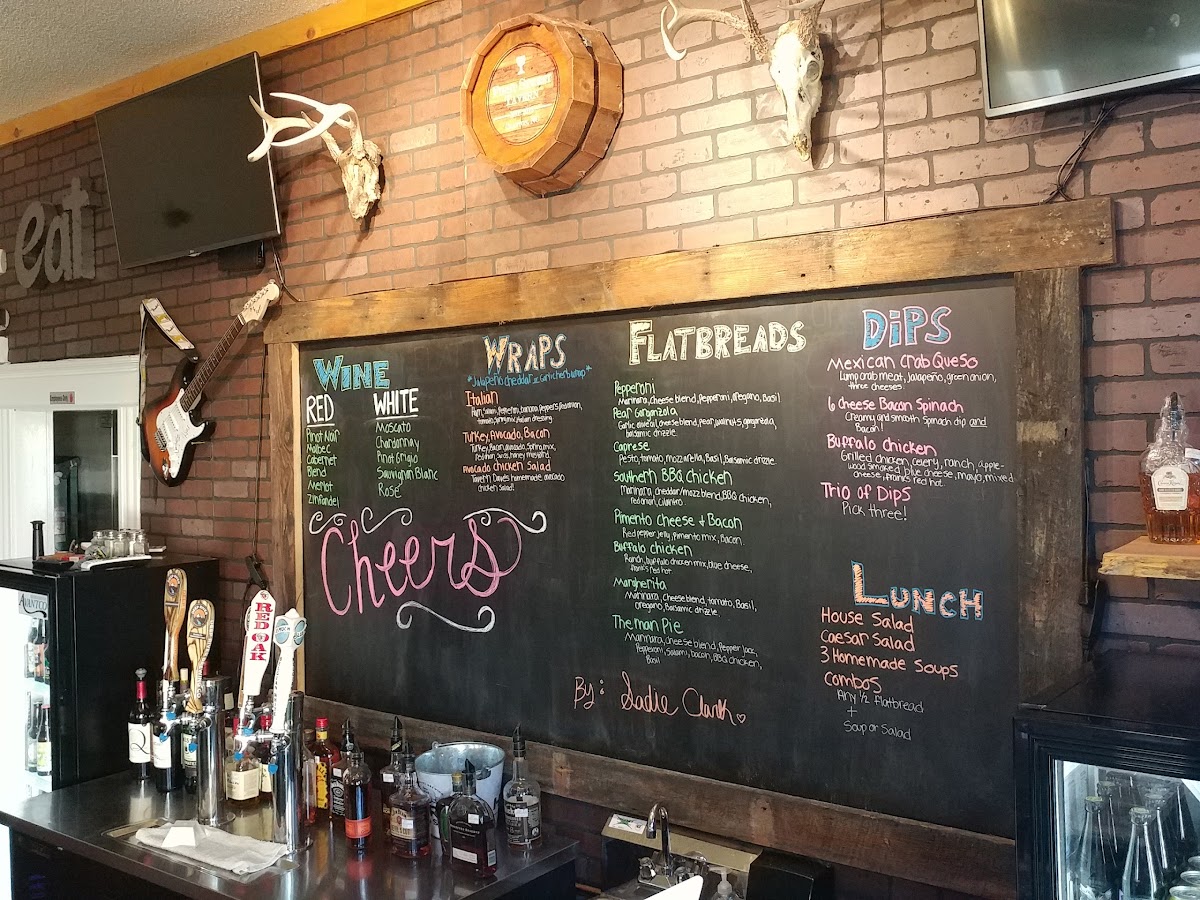 eat
TAVERN
WINE
RED
Pinot Noir
Malbec
Cabernet
Blend
Merlot
Zinfandel
WHITE
Moscato
Chardonnay
Pinot Grigio
Sauvignan Blanc
Rosé
Cheers
WRAPS
*Jalapeño cheddar or Garlic herb wrap*
Italian
Ham, Salami, Pepperoni, banana peppers,
tomato, spring mix, Italian dressing
Turkey, Avocado, Bacon
Turkey, Bacon, avocado, Spring mix,
red onion, honey mustard
Avocado chicken Salad
Tavern Daves homemade avocado
chicken Salad!
FLATBREADS
Pepperoni
Marinara, Cheese blend, Pepperoni, oregano, Basil
Pear Gorganzola
Garlic olive oil, cheese blend, pear, walnuts, gorganzola,
balsamic drizzle.
Caprese
Pesto, tomato, mozzarella, Basil, Balsamic drizzle.
Southern BBQ chicken
Marinara, cheddar/mozz blend, BBQ chicken,
red onion, Cilantro
Pimento cheese + Bacon
Red pepper jelly, pimento mix, Bacon.
Buffalo chicken
Ranch, buffalo chicken mix, blue cheese,
franks red hot
Margherita
Marinara, Cheese blend, tomato, Basil,
oregano, Balsamic drizzle
The man Pie
Marinara, cheese blend, Pepper Jack,
Pepperoni, Salami, bacon, BBQ chicken,
Basil
By: Sadie Clark
DIPS
Mexican Crab Queso
Lump crab meat, Jalapeño, green onion,
three cheeses
6 cheese Bacon Spinach
Creamy and smooth Spinach dip and
Bacon!
Buffalo chicken
Grilled chicken, celery, ranch, apple-
wood smoked blue cheese, mayo, mixed
cheese, franks red hot.
Trio of Dips
Pick three!
LUNCH
House Salad
Caesar Salad
3 Homemade Soups
Combos
Any 1/2 flatbread
+
Soup or Salad
RED OAK
AVANTCO
Q